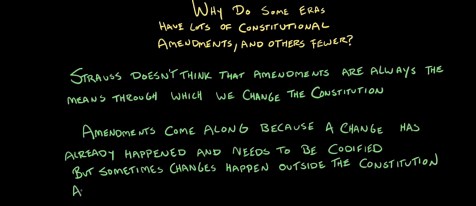 WHY DO SOME ERAS
HAVE LOTS OF CONSTITUTIONAL
AMENDMENTS, AND OTHERS FEWER?
STRAUSS DOESN'T THINK THAT AMENDMENTS ARE ALWAYS THE
MEANS THROUGH WHICH WE CHANGE THE CONSTITUTION
AMENDMENTS COME ALONG BECAUSE A CHANGE HAS
ALREADY HAPPENED AND NEEDS TO BE CODIFIED
BUT SOMETIMES CHANGES HAPPEN OUTSIDE THE CONSTITUTION
A